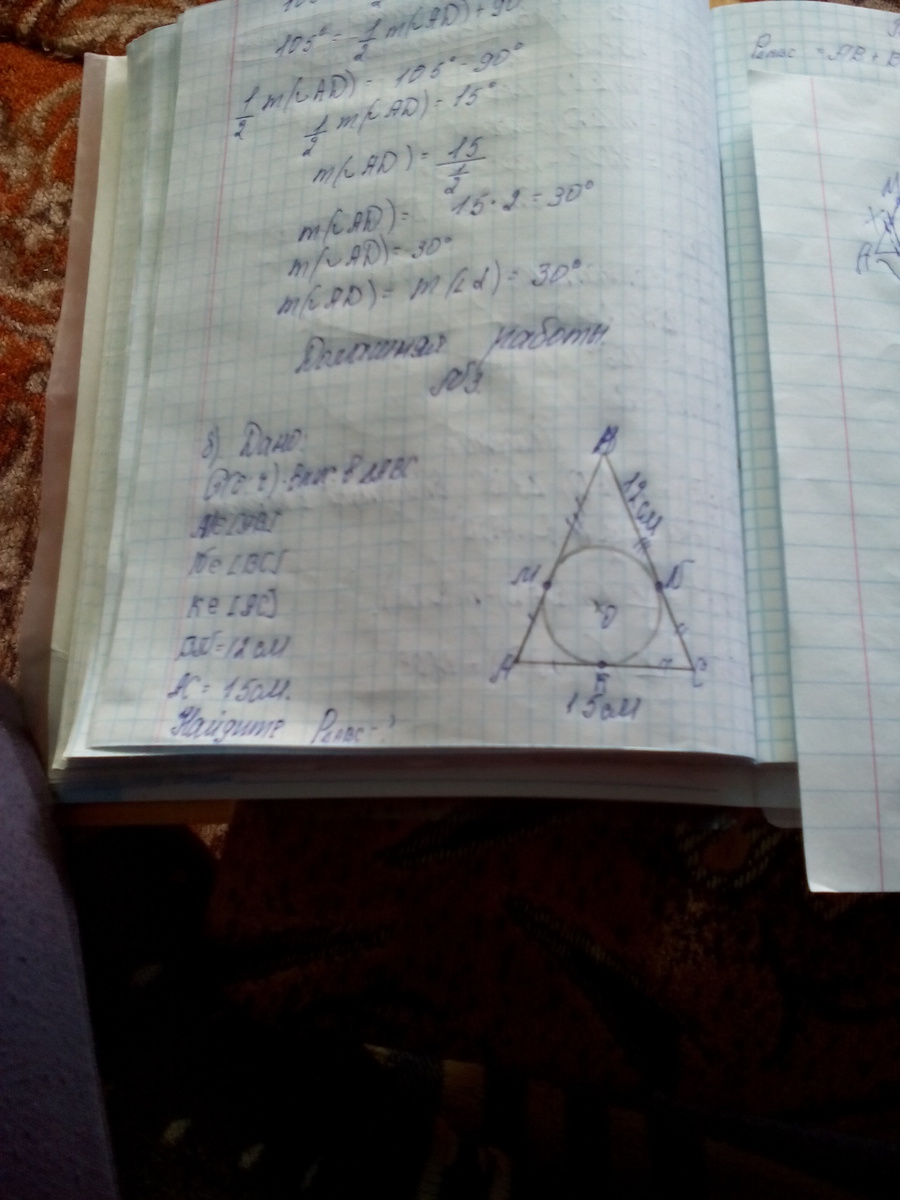 105° = 1/2 m(∪AD) + 90°
1/2 m(∪AD) = 105° - 90°
1/2 m(∪AD) = 15°
m(∪AD) = 15/(1/2)
m(∪AD) = 15 · 2 = 30°
m(∪AD) = 30°
m(∪AD) = m(∠α) = 30°
Домашняя работа
б) Дано:
в △ABC
N ∈ [BC]
K ∈ [AC]
BN = 12 см
AC = 15 см.
Найдите P△ABC - ?
B
12 см
M
N
O
A
K
C
15 см
P△ABC = AB + B
M
A